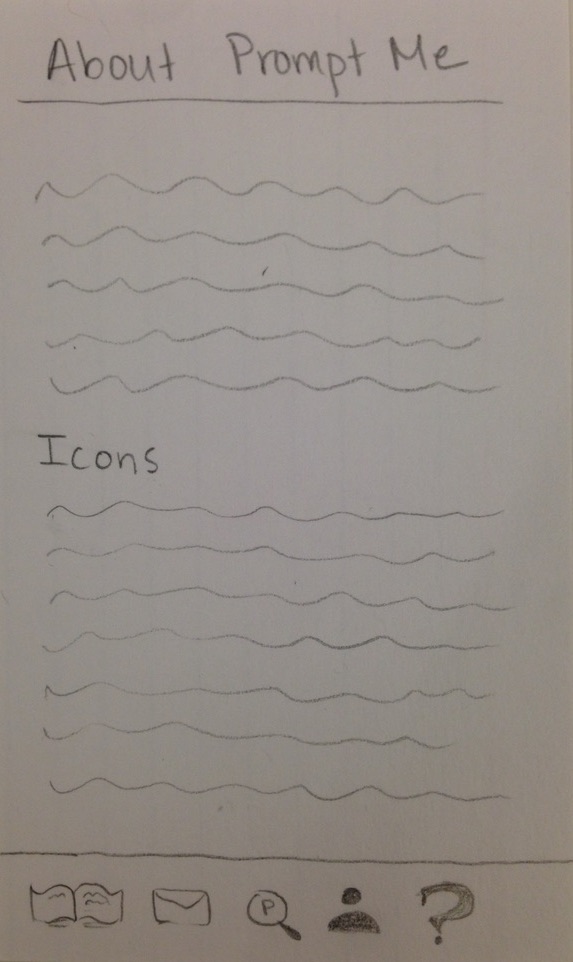 About Prompt Me
Icons
P
?